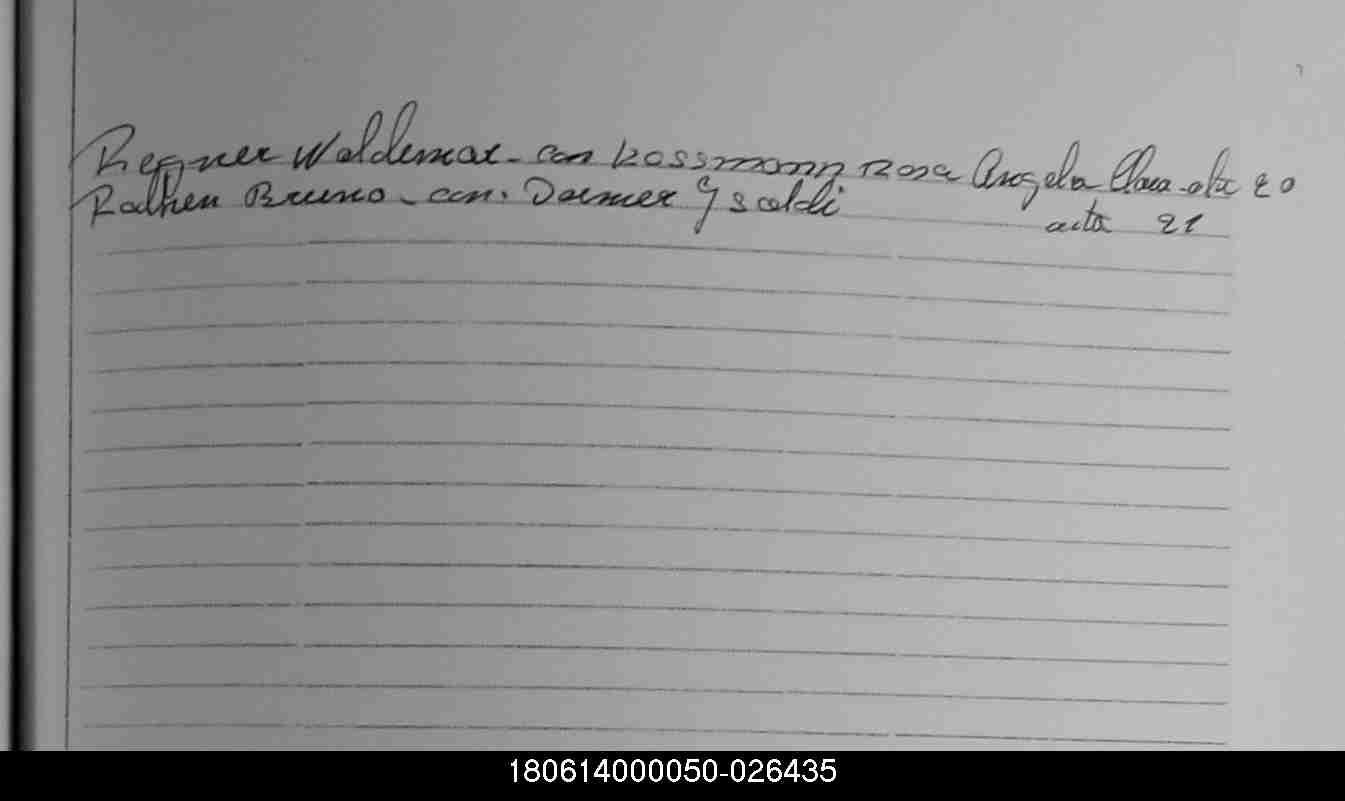 Regner Waldemar - con Kossmann Rosa Angela Clara - acta 20
Rathen Bruno - con. Doemer Ysoldi
acta 21
180614000050-026435